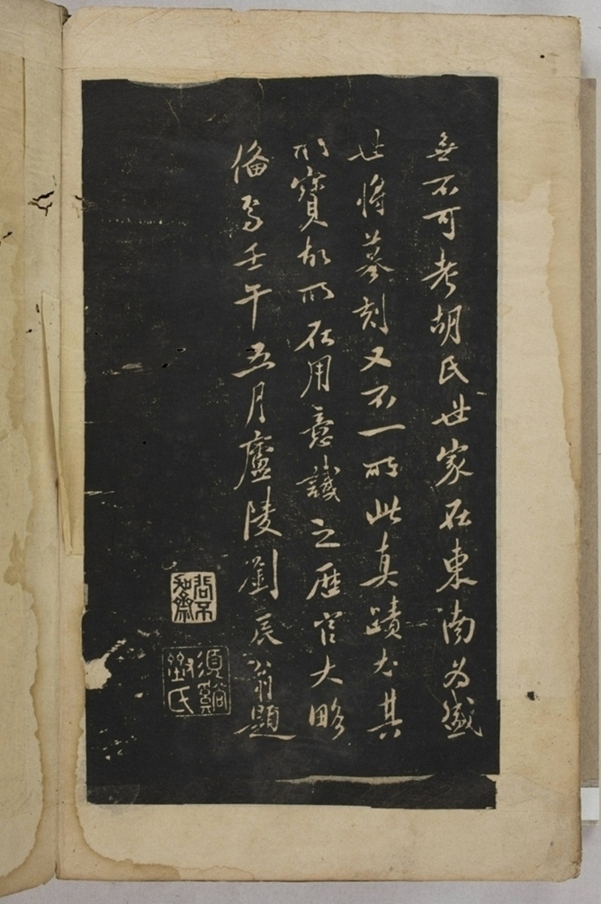 無不可考胡氏世家在東南為盛
世將摹刻又不一所此真蹟尤其
所寶故所在用意識之歷官大略
備焉壬午五月廬陵劉辰翁題
須谿